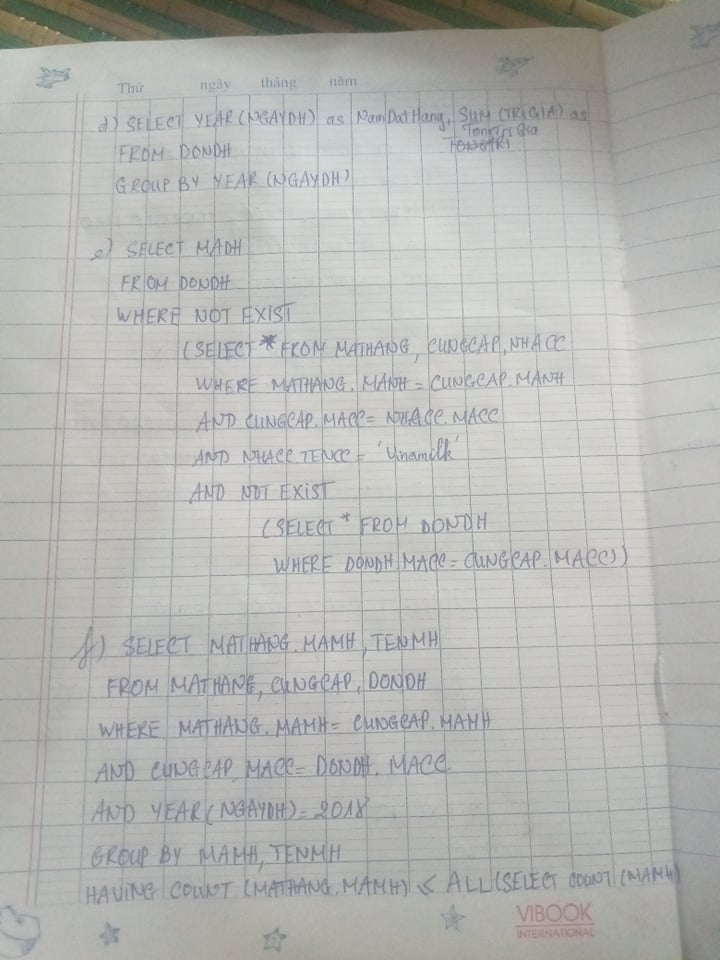 Thứ ngày tháng năm
d) SELECT YEAR(NGAYDH) as NamDatHang, SUM (TRIGIA) as
FROM DONDH
GROUP BY YEAR(NGAYDH)
e) SELECT MADH
FROM DONDH
WHERE NOT EXIST
(SELECT * FROM MATHANG, CUNGCAP, NHACC
WHERE MATHANG.MAMH = CUNGCAP.MAMH
AND CUNGCAP.MACC = NHACC.MACC
AND NHACC.TENCC = 'Vinamilk'
AND NOT EXIST
(SELECT * FROM DONDH
WHERE DONDH.MACC = CUNGCAP.MACC))
f) SELECT MATHANG.MAMH, TENMH
FROM MATHANG, CUNGCAP, DONDH
WHERE MATHANG.MAMH = CUNGCAP.MAMH
AND CUNGCAP.MACC = DONDH.MACC
AND YEAR(NGAYDH) = 2018
GROUP BY MAMH, TENMH
HAVING COUNT (MATHANG.MAMH) ≤ ALL(SELECT COUNT (MAMH)
VIBOOK
INTERNATIONAL